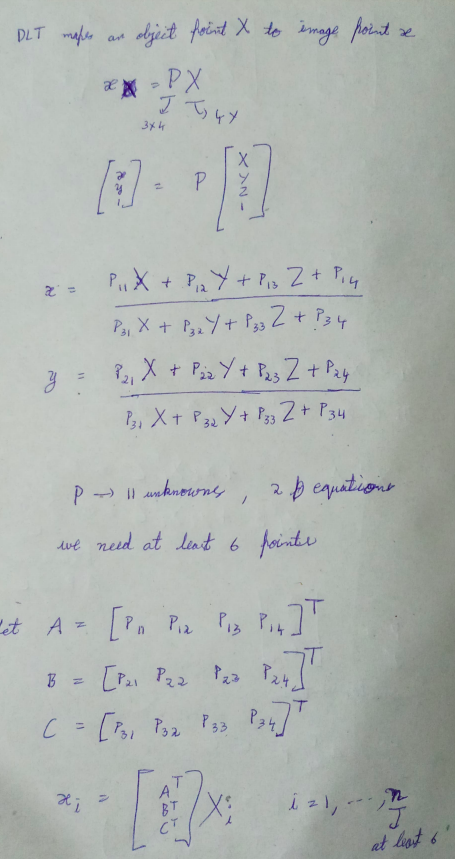 DLT maps an object point X to image point x
x = P X
3x4 4 x
[x y 1] = P [X Y Z 1]
x = P11 X + P12 Y + P13 Z + P14
P31 X + P32 Y + P33 Z + P34
y = P21 X + P22 Y + P23 Z + P24
P31 X + P32 Y + P33 Z + P34
P → 11 unknowns, 2 equations
we need at least 6 points
let A = [P11 P12 P13 P14]^T
B = [P21 P22 P23 P24]^T
C = [P31 P32 P33 P34]^T
xi = [A^T B^T C^T] Xi i = 1, ..., n
at least 6